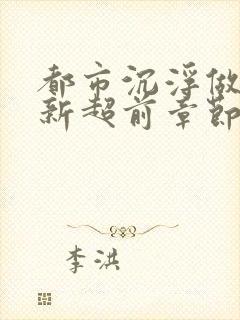 都市沉浮做
新超前章節
李洪